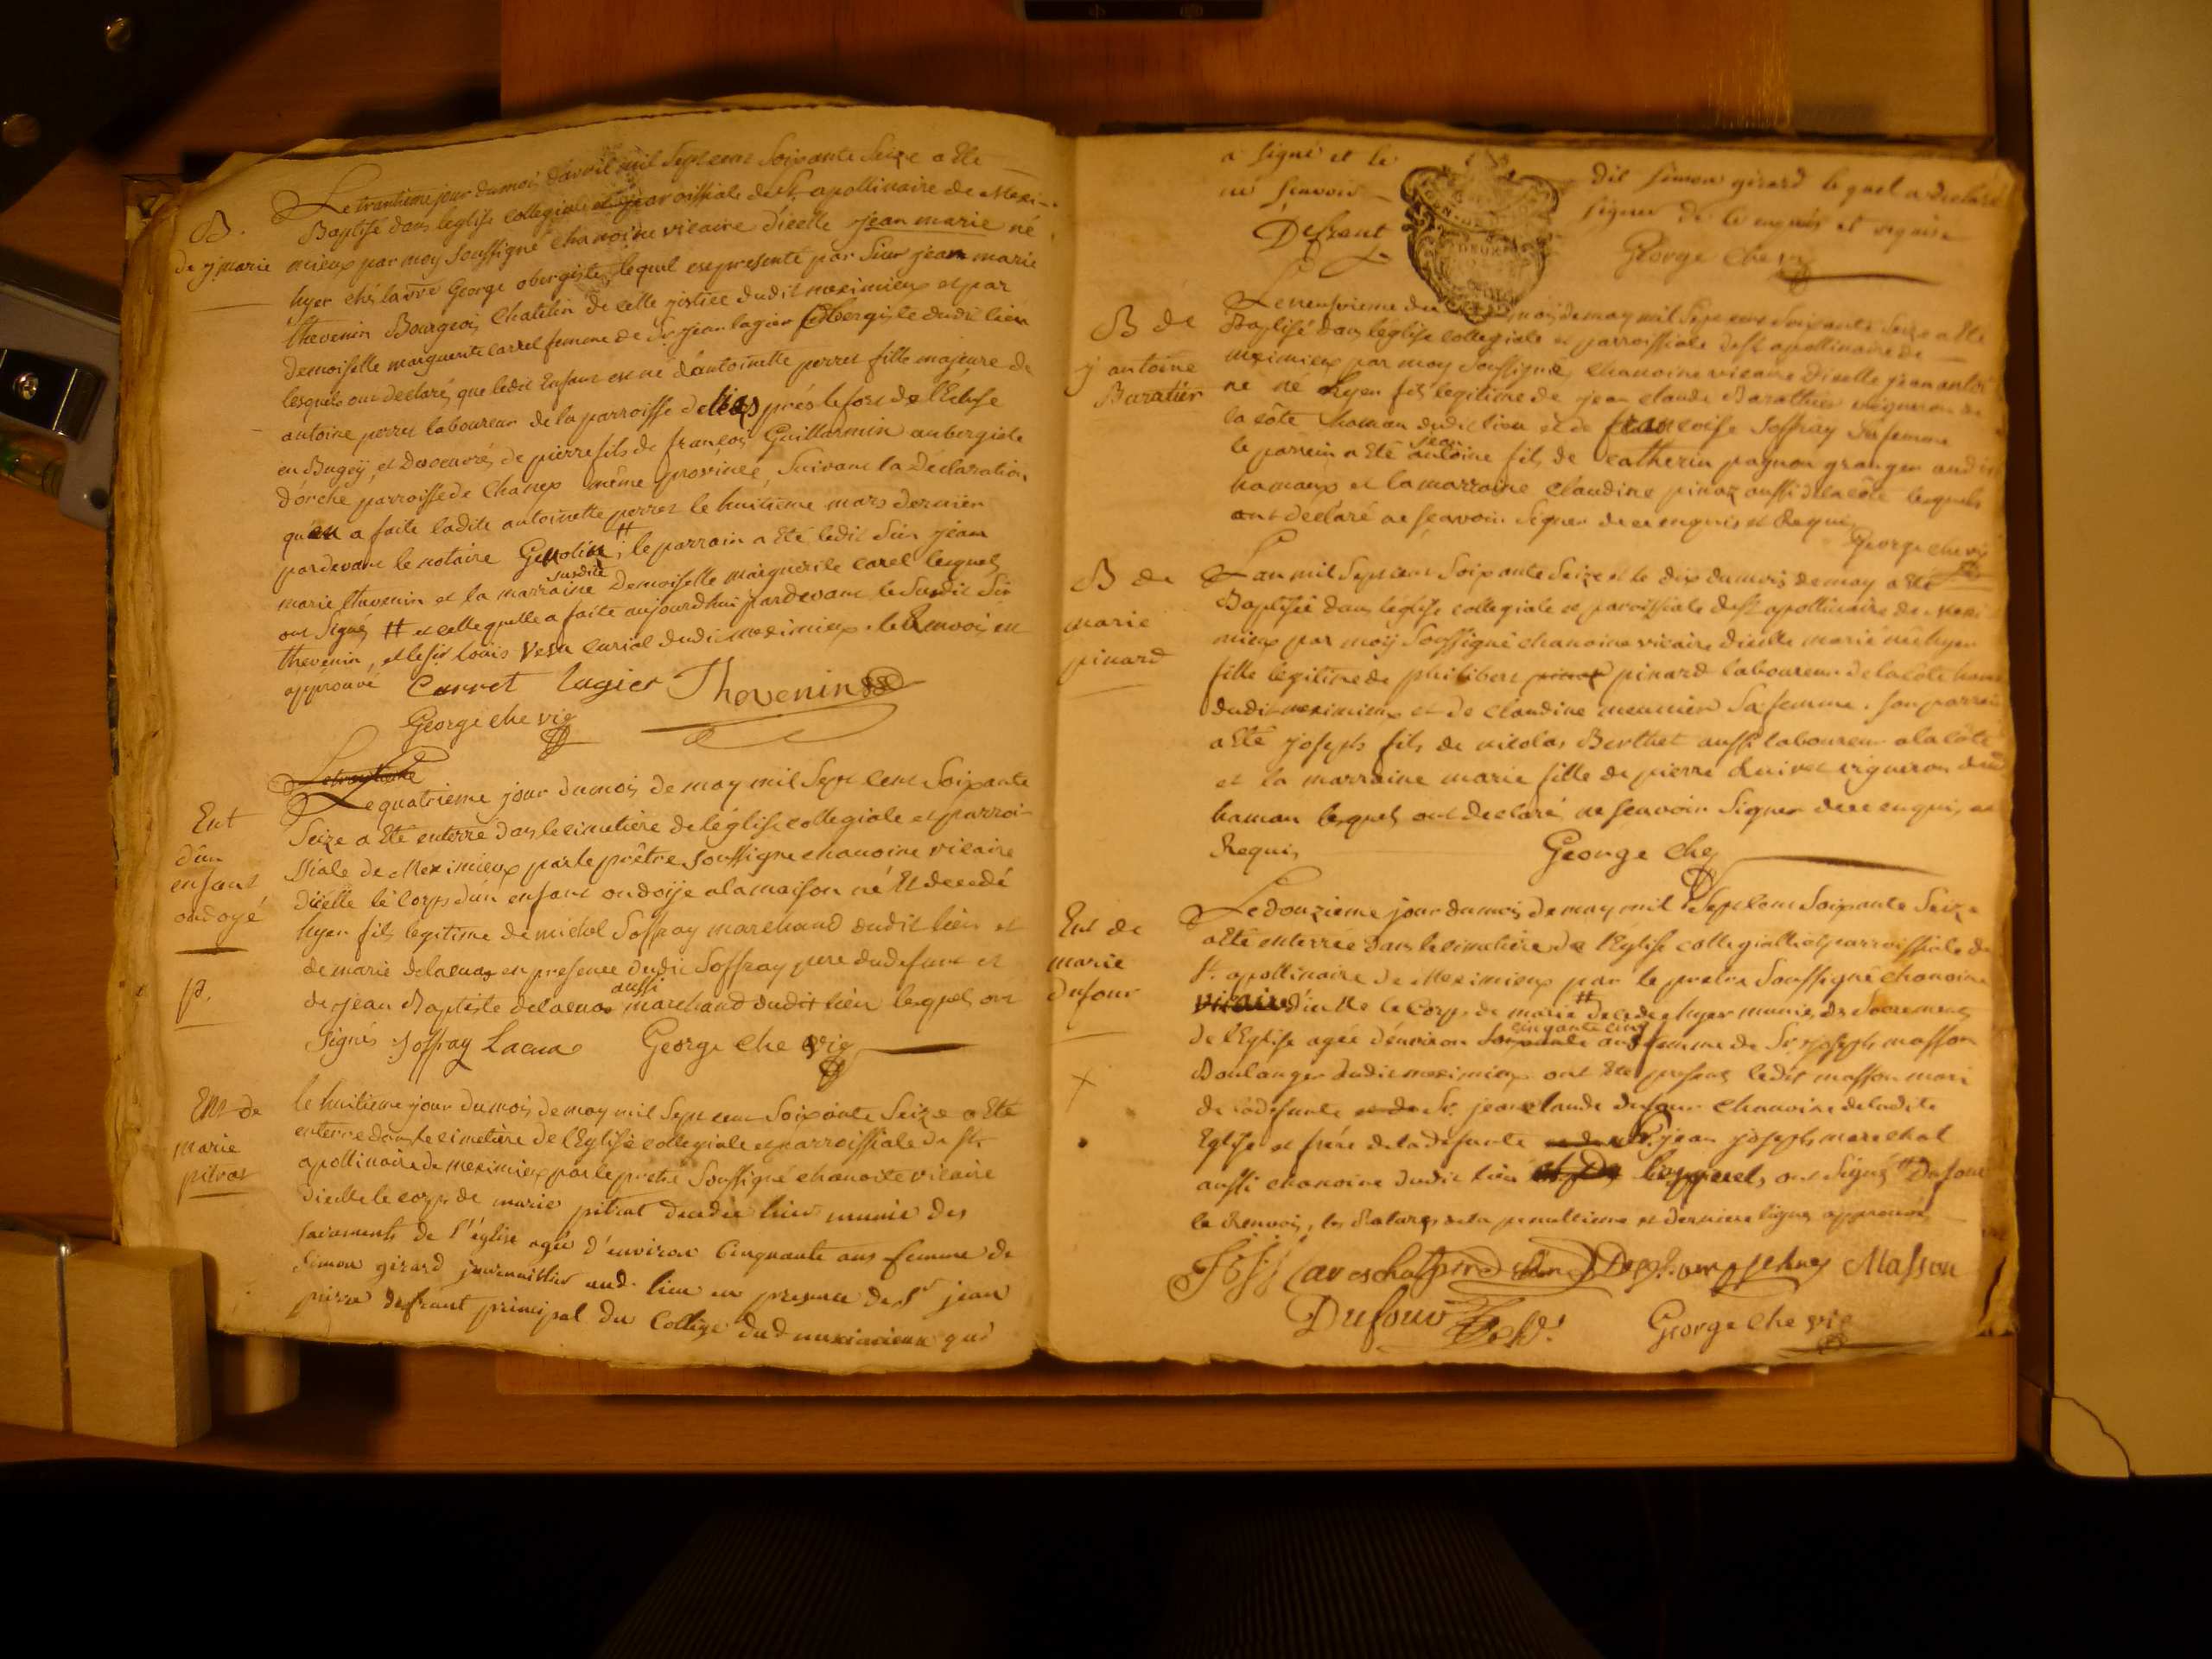 B.
de j marie
Le trantieme jour du mois d'avril mil Sept cens Soixante Seize a Eté
Baptisé dans leglise collegiale et parroissiale de St. apollinaire de Mexi-
mieux par moy Soussigné chanoine vicaire d'icelle jean marie né
hyer chés la vve George obergiste, lequel est presenté par Sieur jean marie
thevenin Bourgeois Chatelin de cette justice dudit meximieux et par
Demoiselle marguerite carrel femme de Sr jean lagier aubergiste dudit lieu
lesquels ont declaré, que ledit Enfant est né d'antoinette perret fille majeure de
antoine perret laboureur de la parroisse de près le fort de l'Ecluse
en Bugey, et Des oeuvres de pierre fils de françois Guillarmin aubergiste
d'orche parroisse de Chanex même province, Suivant la Declaration
qu'en a faite ladite antoinette perret le huitieme mars dernier
pardevant le notaire # ; le parrain a Eté ledit Sieur jean
marie thevenin et la marraine susdite Demoiselle marguerite carel lesquels
ont Signés # et celle quelle a faite aujourdhui pardevant le Susdit Sir
thevenin, et le Sir Loüis curial dudit meximieux. le Renvois est
approuvé Carret Lagier Thevenin
George che vic
Ent
d'un
enfant
ondoyé
p.
Le quatrieme jour du mois de may mil Sept cent Soixante
Seize a Eté enterré dans le cimetière de léglise collegiale et parroi-
ssiale de Meximieux par le prêtre Soussigné chanoine vicaire
d'icelle le corps d'un enfant ondoije a la maison né Et decedé
hyer fils legitime de michel Soffray marchand dudit lieu et
de marie delacua en presence dudit Soffray pere du defunt et
de jean Baptiste delacua aussi marchand dudit lieu lesquels ont
Signés Soffray Lacua George che vic
Ent de
marie
pitrat
le huitieme jour du mois de may mil Sept cent Soixante Seize a Eté
enterré dans le cimetière de l'Eglise collegiale et parroissiale de St.
apollinaire de meximieux par le pretre Soussigné chanoine vicaire
d'icelle le corps de marie pitrat decedée hier munie des
sacaments de l'église agée d'environ Cinquante ans femme de
Simon girard journaillier aud. lieu en presence de Sr jean
pierre defrant principal du College dud meximieux qui
a signé et le dit Simon girard lequel a declaré
ne sçavoir signer de ce enquis et requis
Defrant George che vic
B de
j antoine
Baratier
Le neufvieme du mois de may mil Sept cent Soixante Seize a Eté
Baptisé dans leglise collegiale et parroissiale de St apollinaire de
meximieux par moy Soussigné chanoine vicaire dicelle jean antoi
ne né hyer fils legitime de jean claude Barathier vigneron de
la côte hamau dudit lieu et de francoise Soffray Sa femme
le parrein a Eté jean antoine fils de catherin pagnon granger audit
hamaux et la marraine claudine pinaz aussi de la côte lesquels
ont declaré ne sçavoir Signer de ce enquis et Requis
George che vic
B de
marie
pinard
Lan mil Sept cent Soixante Seize et le dix du mois de may a Eté
Baptisée dans léglise collegiale et parroissiale de St apollinaire de Mexi
mieux par moy Soussigné chanoine vicaire dicelle marie née hyer
fille legitime de philibert pinard laboureur de la côte hamau
dudit meximieux et de claudine meunier Sa femme. Son parrein
a Eté joseph fils de nicolas Berthet aussi laboureur a la côte
et la marraine marie fille de pierre vigneron dud
hamau lesquels ont declaré ne sçavoir Signer de ce enquis et
Requis George che
Ent de
marie
Dufour
Le douzieme jour du mois de may mil Sept cent Soixante Seize
a Eté enterrée dans le cimetière de l'Eglise collegialle et parroissiale de
St. apollinaire de Meximieux par le pretre Soussigné chanoine
vicaire d'icelle le Corps de marie # decedée hyer munie des Sacrements
de l'Eglise agée d'environ cinquante cinq ans femme de Sr. joseph masson
Boulanger dudit meximieux ont Eté presens ledit masson mari
de la defunte Sr. jean claude dufour chanoine de ladite
Eglise et frére de la defunte jean joseph marechal
aussi chanoine dudit lieu lesquels ont Signés # Dufour
le Renvois, les Ratures de la penultieme et derniere lignes approuvés
Masson
Dufour George che vic